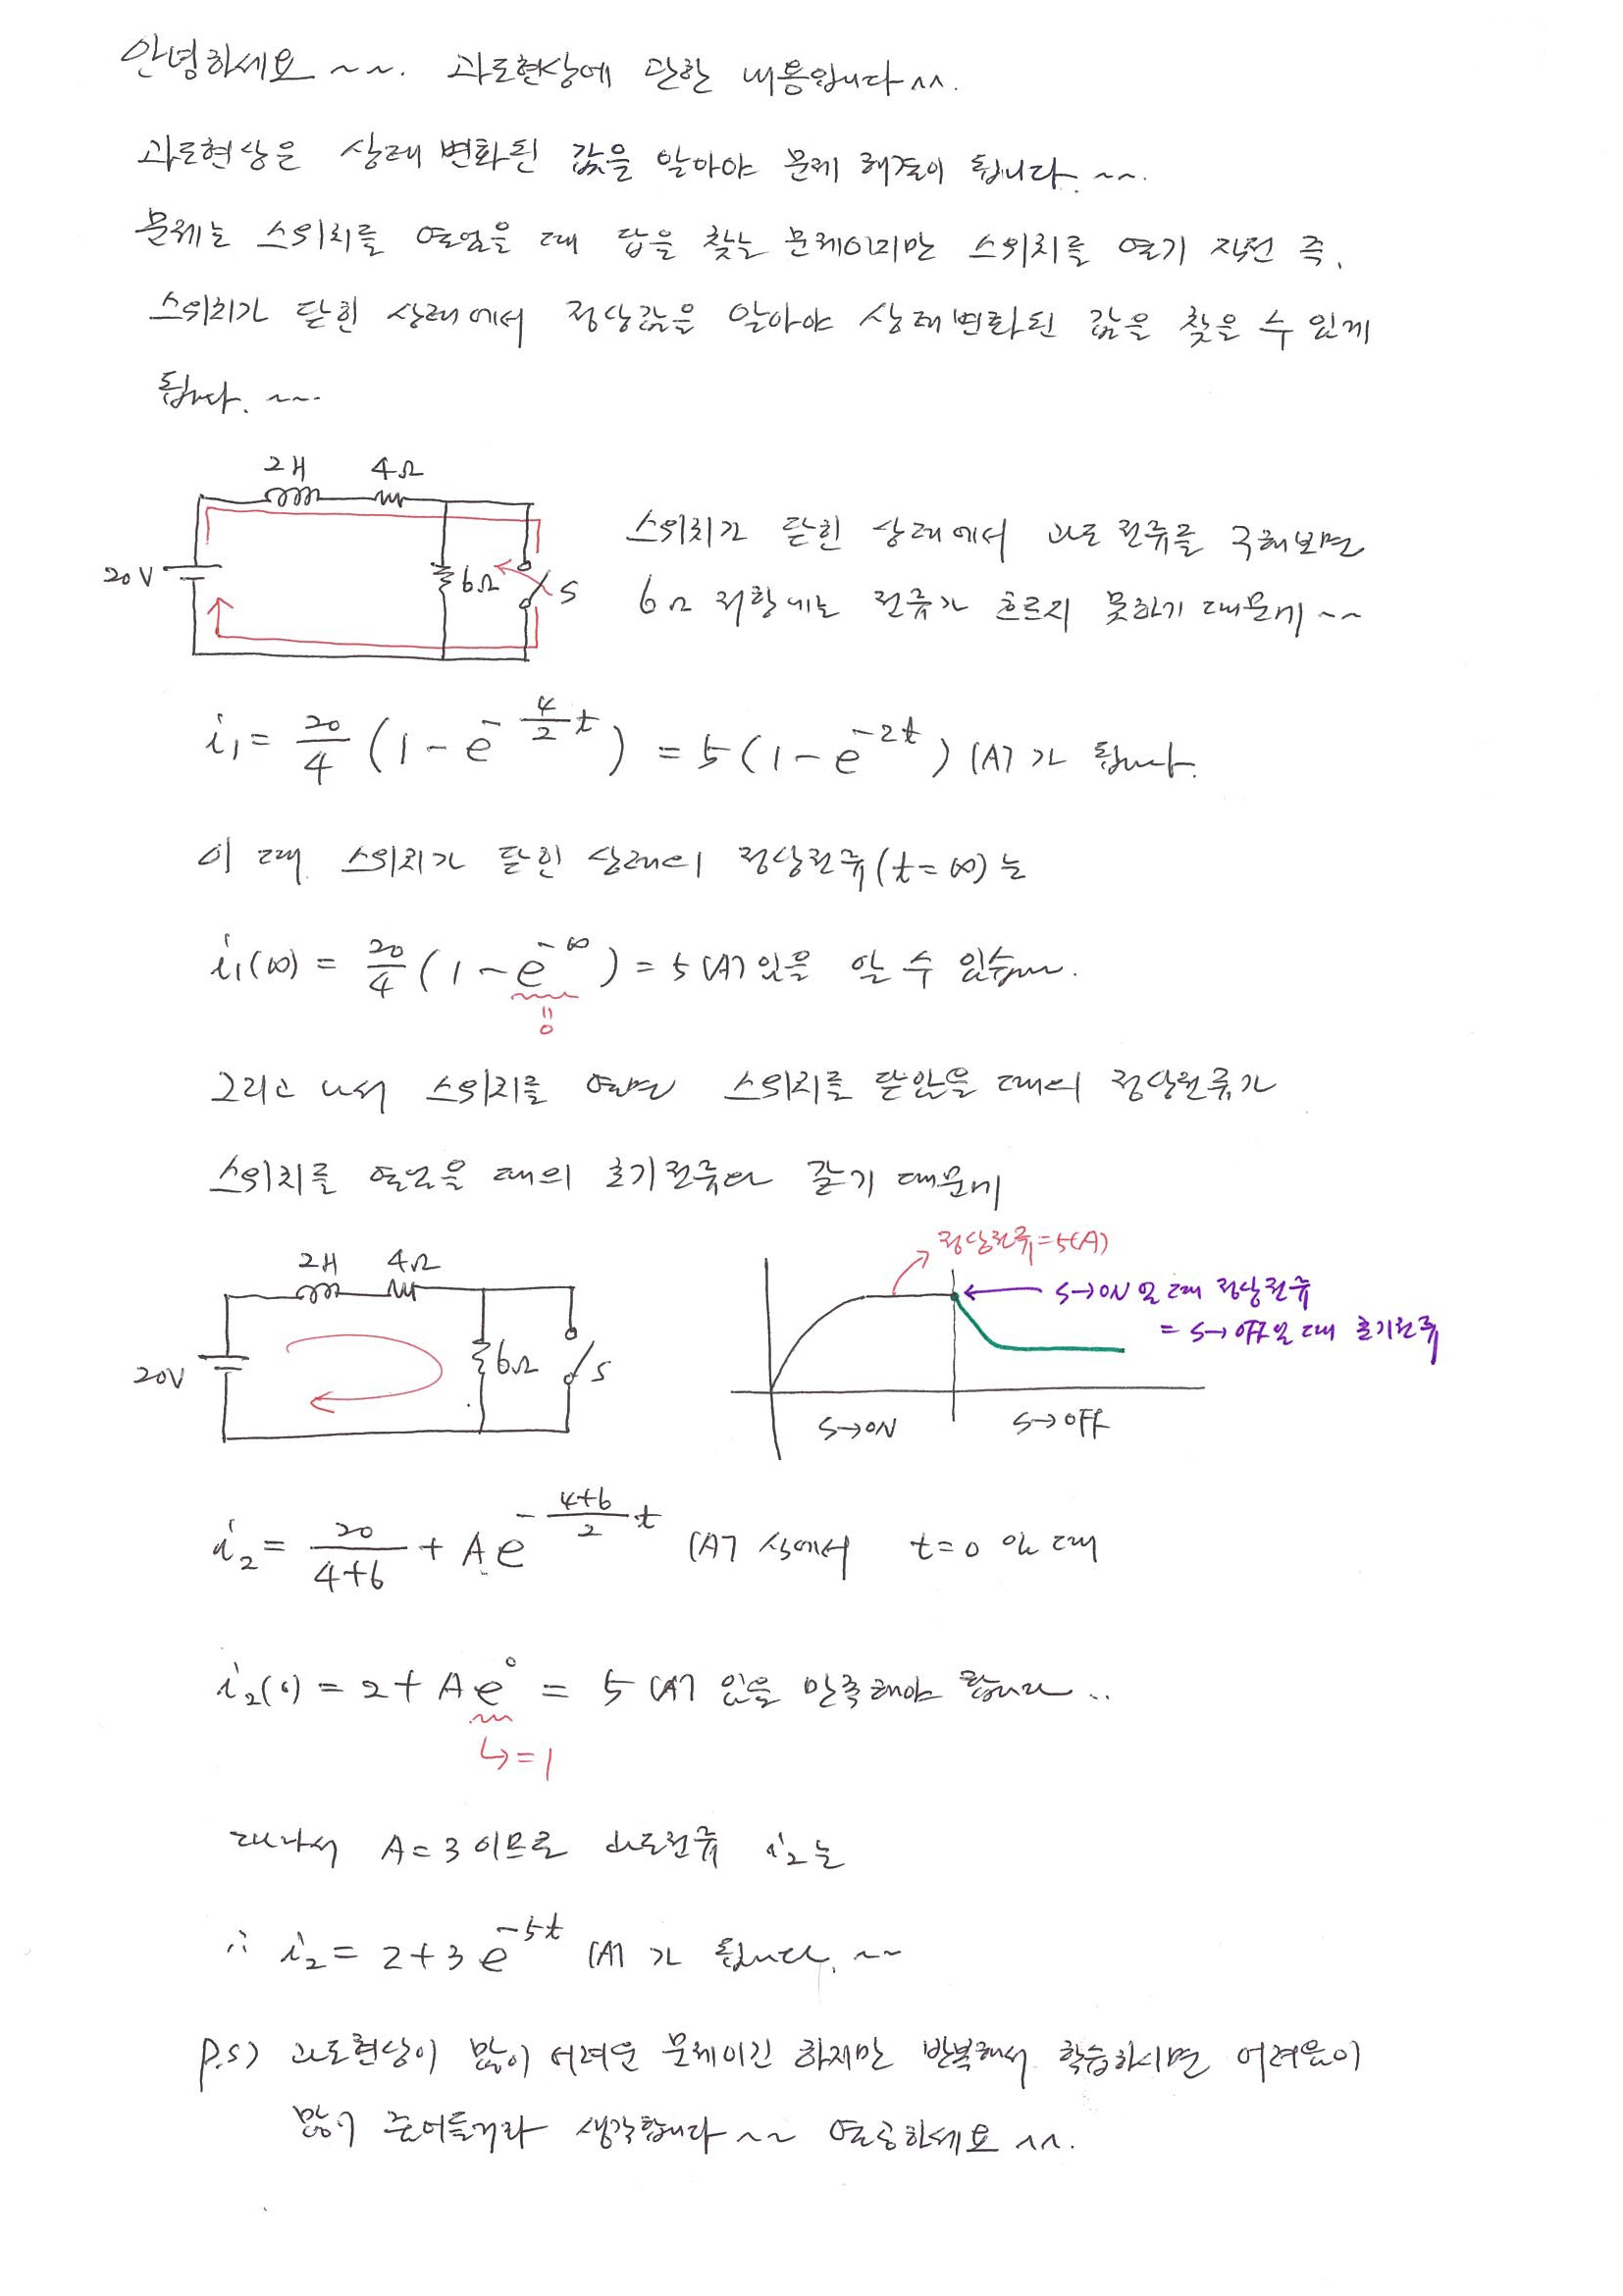 안녕하세요 ~~. 과도현상에 관한 내용입니다 ^^.
과도현상은 상태 변화된 값을 알아야 문제 해결이 됩니다. ~~.
문제는 스위치를 열었을 때 답을 찾는 문제이지만 스위치를 열기 직전 즉,
스위치가 닫힌 상태에서 정상값을 알아야 상태변화된 값을 찾을 수 있게
됩니다. ~~.
2H 4Ω
20V 6Ω S
스위치가 닫힌 상태에서 과도전류를 구해보면
6Ω 저항에는 전류가 흐르지 못하기 때문에 ~~
i₁ = 20/4 (1 - e^(-4/2 t)) = 5(1 - e^(-2t)) [A]가 됩니다.
이 때 스위치가 닫힌 상태의 정상전류(t=∞)는
i₁(∞) = 20/4 (1 - e^(-∞)) = 5[A]임을 알 수 있습니다.
= 0
그리고 나서 스위치를 열면 스위치를 닫았을 때의 정상전류가
스위치를 열었을 때의 초기전류와 같기 때문에
2H 4Ω
20V 6Ω S
정상전류=5[A]
S→ON일 때 정상전류
= S→OFF일 때 초기전류
S→ON S→OFF
i₂ = 20/(4+6) + Ae^(-(4+6)/2 t) [A] 식에서 t=0일 때
i₂(0) = 2 + Ae⁰ = 5[A]임을 만족해야 합니다..
↳ = 1
따라서 A=3이므로 과도전류 i₂는
∴ i₂ = 2+3e^(-5t) [A]가 됩니다. ~~
P.S) 과도현상이 많이 어려운 문제이긴 하지만 반복해서 학습하시면 어려움이
많이 줄어들거라 생각합니다 ~~ 열공하세요 ^^.